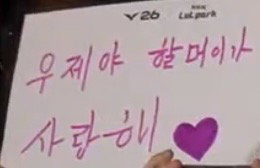 V26
LuLpark
우제야 할머이가
사랑해